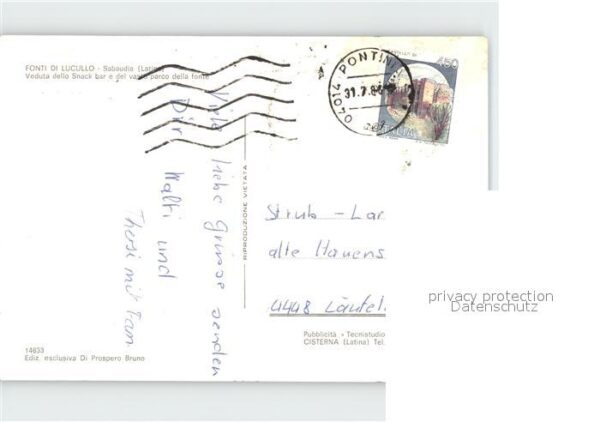 FONTI DI LUCULLO - Sabaudia (Latina)
Veduta dello Snack bar e del vasto parco della fonte
04014 PONTIN
31.7.8
450
ITALIA
Viele liebe Grüsse senden
Dir Walti und
Thesi mit Fam.
RIPRODUZIONE VIETATA
Strub - Lar
alte Hauens
4448 Läufel
privacy protection
Datenschutz
Pubblicità - Tecnistudio
CISTERNA (Latina) Tel.
14633
Ediz. esclusiva Di Prospero Bruno